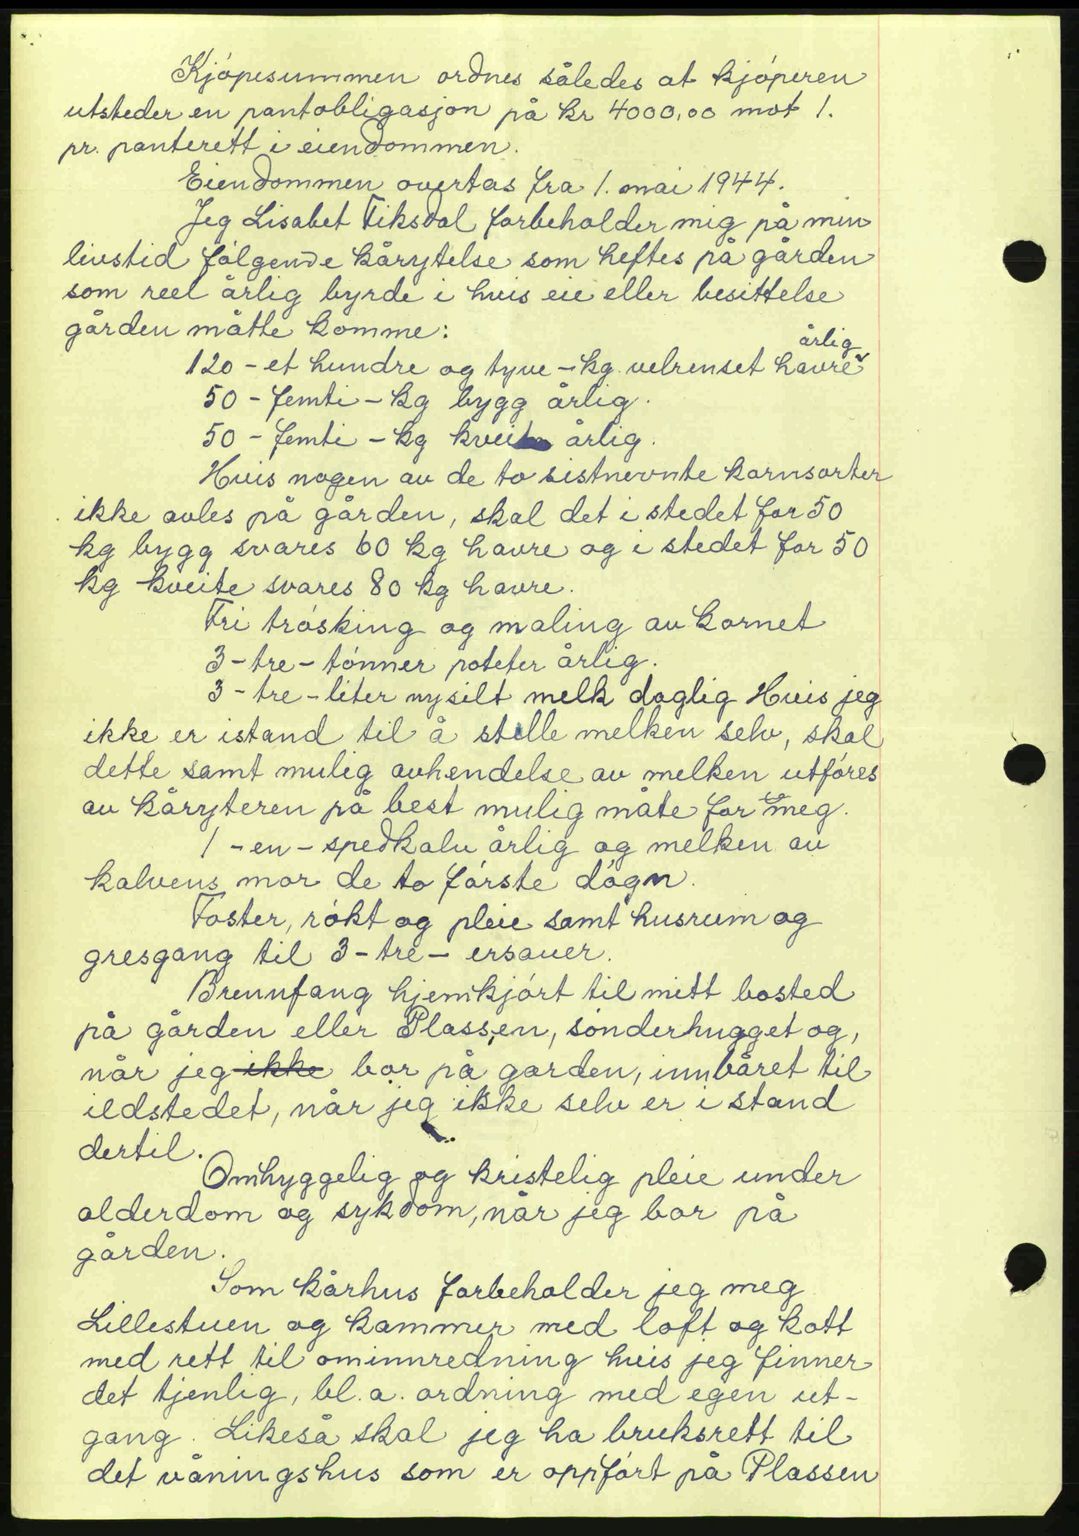 Kjøpesummen ordnes således at kjøperen
utsteder en pantobligasjon på kr 4000,00 mot 1.
pr. panterett i eiendommen.
Eiendommen overtas fra 1. mai 1944.
Jeg Lisabet Tiksdal forbeholder mig på min
livstid følgende kårytelse som heftes på gården
som reel årlig byrde i hvis eie eller besittelse
gården måtte komme:
120 - et hundre og tyve - kg. velrenset havre årlig
50 - femti - kg bygg årlig.
50 - femti - kg kveite årlig.
Hvis nogen av de to sistnevnte kornsorter
ikke avles på gården, skal det i stedet for 50
kg bygg svares 60 kg havre og i stedet for 50
kg kveite svares 80 kg havre.
Fri trøsking og maling av kornet
3 - tre - tønner poteter årlig.
3 - tre - liter nysilt melk daglig Hvis jeg
ikke er istand til å stelle melken selv, skal
dette samt mulig avhendelse av melken utføres
av kåryteren på best mulig måte for meg.
1 - en - spedkalv årlig og melken av
kalvens mor de to første døgn.
Foster, røkt og pleie samt husrum og
gresgang til 3 - tre - ersauer.
Brennfang hjemkjørt til mitt bosted
på gården eller Plassen, sønderhugget og,
når jeg ikke bor på garden, innbåret til
ildstedet, når jeg ikke selv er i stand
dertil.
Omhyggelig og kristelig pleie under
alderdom og sykdom, når jeg bor på
gården.
Som kårhus forbeholder jeg meg
Lillestuen og kammer med loft og kott
med rett til ominnredning hvis jeg finner
det tjenlig, bl. a. ordning med egen ut-
gang. Likeså skal jeg ha bruksrett til
det våningshus som er oppført på Plassen